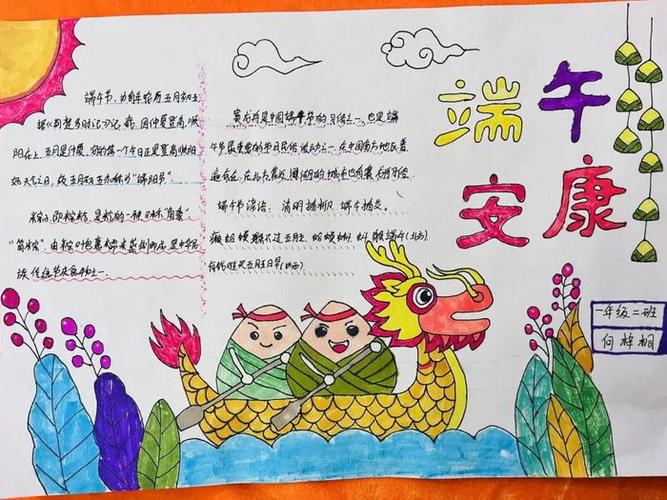 端午
安康
端午节,为每年农历五月初五
据《荆楚岁时记》记载,因仲夏登高,顺
阳在上,五月是仲夏,它的第一个午日正是登高顺阳
好天气之日,故五月初五亦称为"端阳节"
粽子,即粽籺,是粽的一种,又称"角黍"
"筒粽",由粽叶包裹糯米蒸制而成,是中华民
族传统节庆食物之一
赛龙舟是中国端午节的习俗之一,也是端
午节最重要的节日民俗活动之一,在中国南方地区普
遍存在,在北方靠近河湖的城市也有赛龙舟习俗
端午节谚语:清明插柳,端午插艾。
癞蛤蟆躲不过五月五
有钱难买五月五日旱
一年级二班
何梓桐